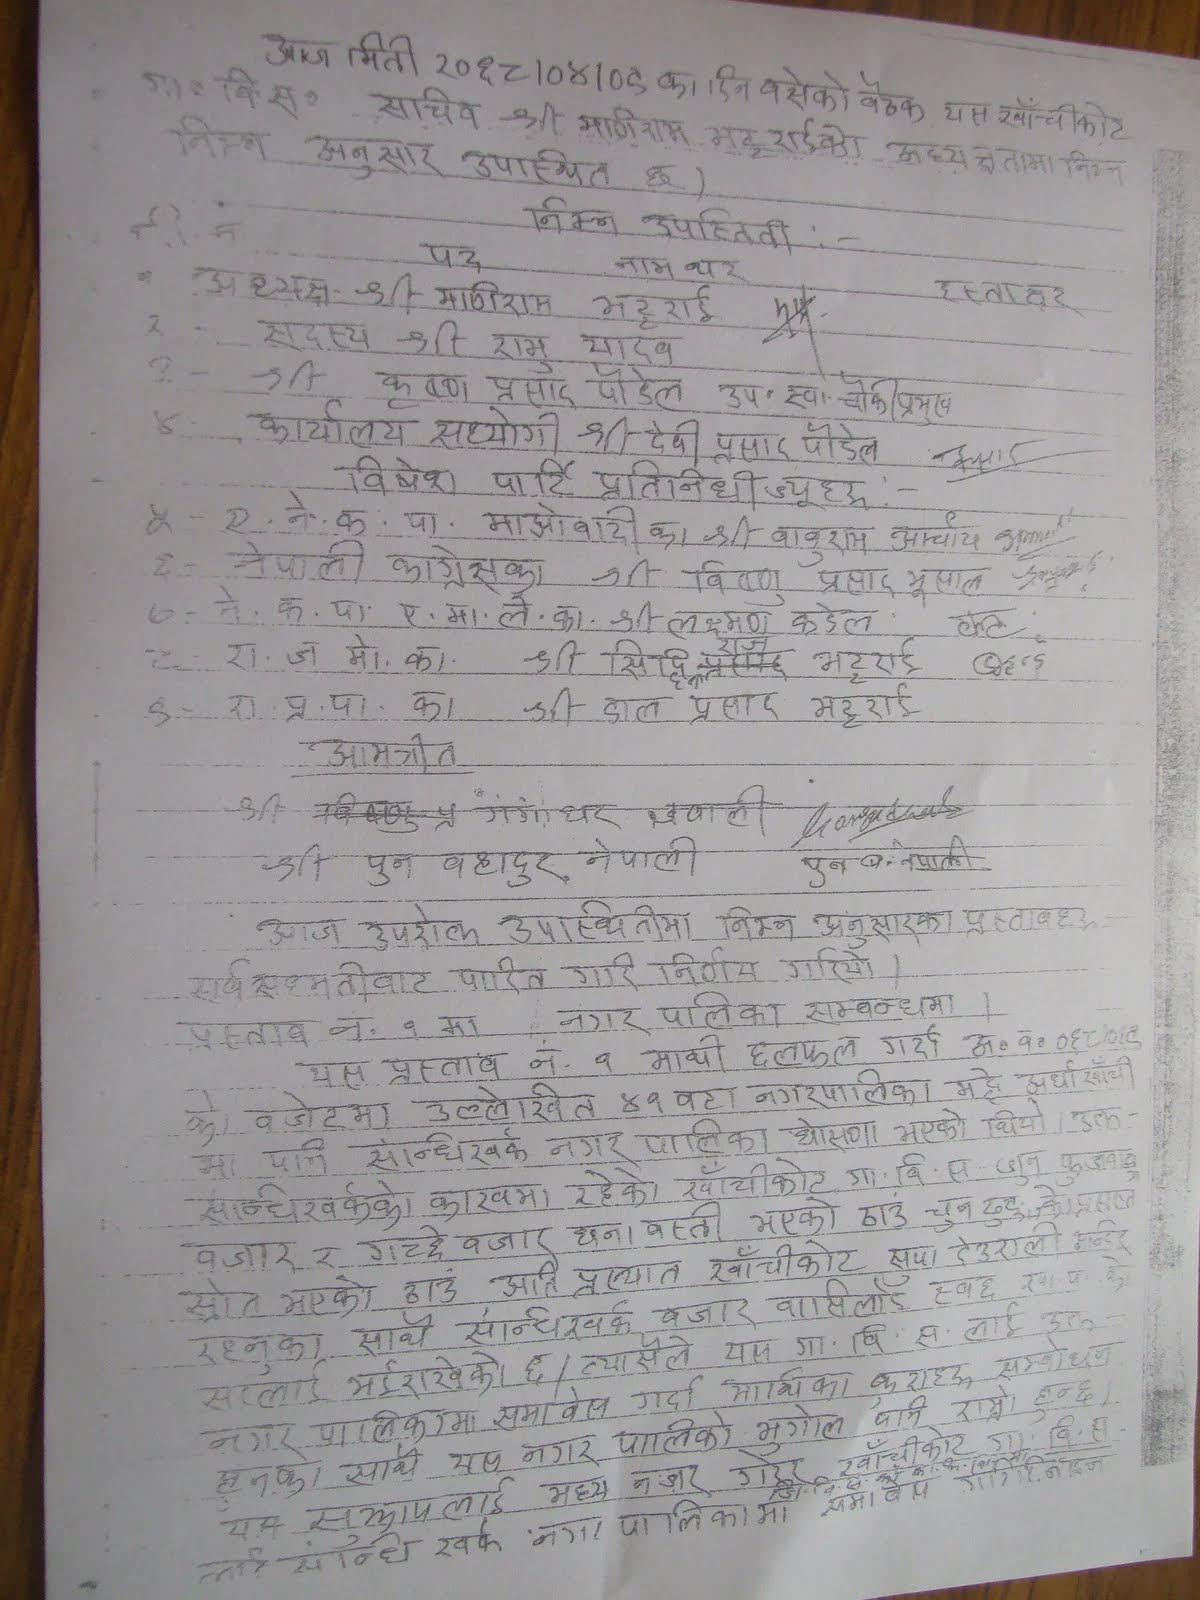 आज मिती २०६८।०४।०९ का दिन वसेको वैठक यस खाँचीकोट
गा॰ वि॰ स॰ सचिव श्री माणीराम भट्टराईको अध्यक्षतामा निम्न
निम्न अनुसार उपास्थित छ।
निम्न उपस्थिती :-
पद नाम थर हस्ताक्षर
१ अध्यक्ष श्री माणीराम भट्टराई
२ - सदस्य श्री रामु यादव
३ - श्री कृष्ण प्रसाद पौडेल उप. स्वा. चौकी प्रमुख
४ - कार्यालय सहयोगी श्री देवी प्रसाद पौडेल
विषेश पार्टि प्रतिनिधीज्यूहरु :-
५ - ए. ने. क. पा. माओवादी का श्री वावुराम आर्चाय
६ - नेपाली काग्रेसका श्री विष्णु प्रसाद भूसाल
७ - ने. क. पा. ए. मा. ले. का. श्री लक्ष्मण कडेल
८ - रा. ज. मो. का. श्री सिद्दि राज भट्टराई
९ - रा. प्र. पा. का श्री डाल प्रसाद भट्टराई
आमन्त्रीत
श्री गंगाधर खवाली
श्री पुन वहादुर नेपाली पुन व. नेपाली
आज उपरोक्त उपास्थितीमा निम्न अनुसारका प्रस्तावहरु
सर्वसहमतीवाट पारित गरि निर्णय गरियो।
प्रस्ताव नं. १ मा नगर पालिका सम्वन्धमा।
यस प्रस्ताव नं. १ माथी छलफल गर्दा आ॰ व॰ ०६८।०६९
को वजेटमा उल्लेखित ४१ वटा नगरपालिका मद्दे अर्घाखाँची
मा पनि सन्धिखर्क नगर पालिका घोसणा भएको थियो। उक्त
सन्धिखर्कको काखमा रहेको खाँचीकोट गा. वि. स जुन
वजार र गच्दे वजार घना वस्ती भएको ठाउं चुन ढुङ्गाको प्रसस्त
स्रोत भएको ठाउं अति प्रख्यात खाँचीकोट सुपा देउराली मन्दिर
रहनुका साथै सन्धिखर्क वजार वासिलाई स्वछ खा. पा. को
भईराखेको छ। त्यासैले यस गा. वि. स. लाई उक्त
नगर पालिकामा समावेस गर्दा माथिका कुराहरु सम्वोधन
हुनको साथै यस नगर पालिको भुगोल पनि राम्रो हुन्छ।
यस सुझावलाई मध्य नजर गरेर खाँचीकोट गा. वि. स.
लाई सन्धि खर्क नगर पालिकामा समावेस